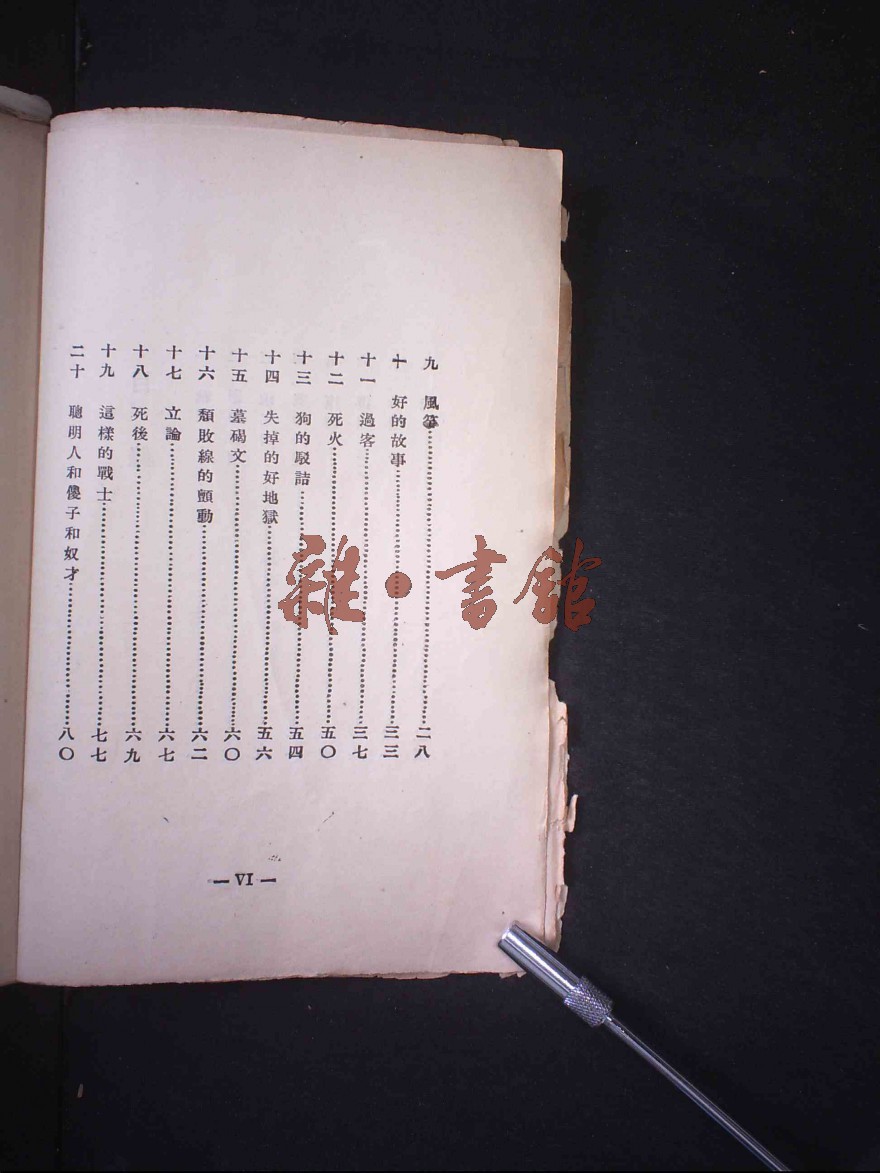 九　風箏……二八
十　好的故事……三三
十一　過客……三七
十二　死火……五〇
十三　狗的駁詰……五四
十四　失掉的好地獄……五六
十五　墓碣文……六〇
十六　頹敗線的顫動……六二
十七　立論……六七
十八　死後……六九
十九　這樣的戰士……七七
二十　聰明人和傻子和奴才……八〇
— VI —
雜·書館